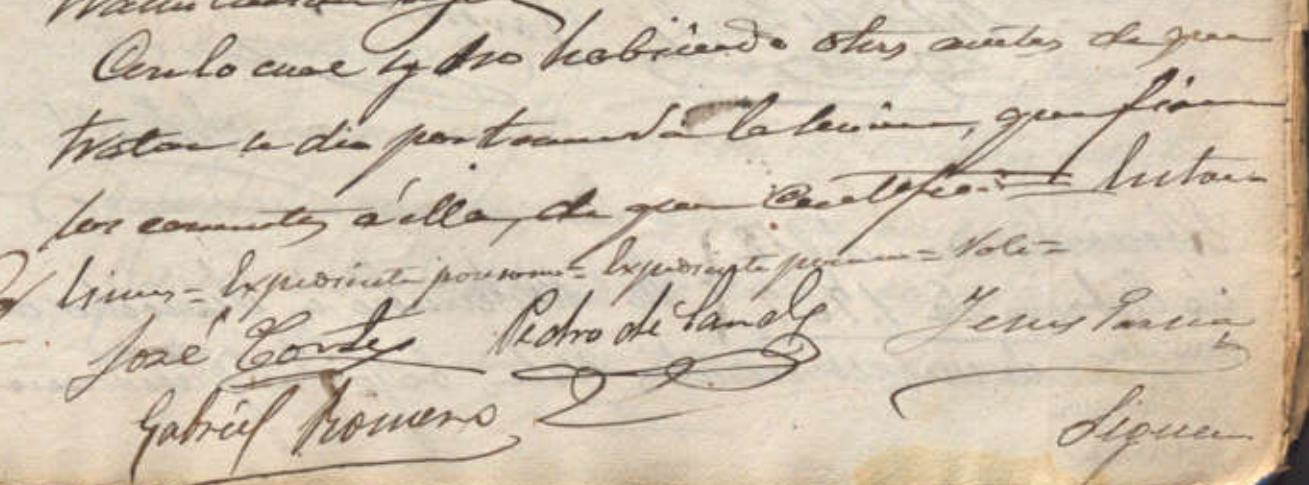 Con lo cual y no habiendo otros autos de que
tratar se dio por terminada la sesion, que firman
los concurrentes á ella, de que Certifico = Entre
lineas = Expediente = Expediente = Vale =
José Cortes Pedro de Jesus Garcia
Gabriel Romero Siguen